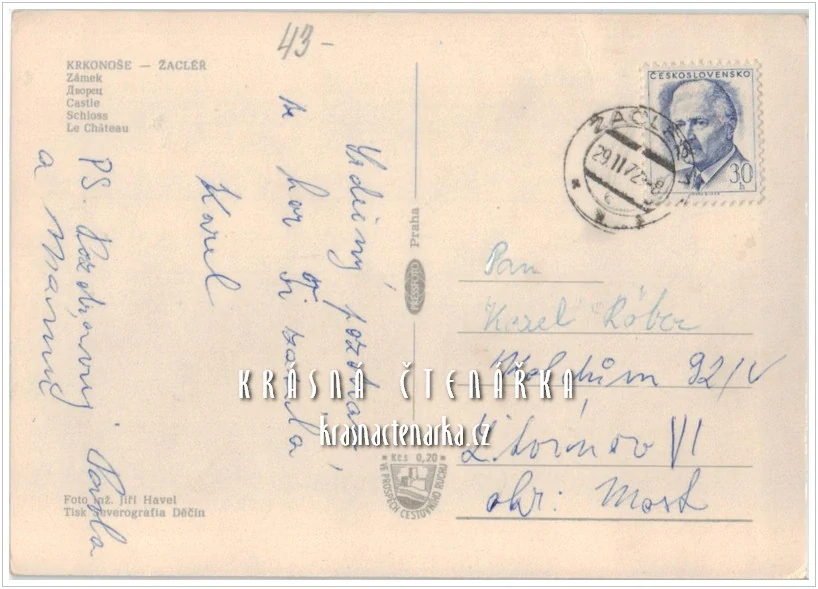 43-
KRKONOŠE — ŽACLÉŘ
Zámek
Дворец
Castle
Schloss
Le Château
ČESKOSLOVENSKO
30
h
ŽACLÉŘ
29.II.72-8
Srdečný pozdrav
z hor Ti zasílá
Karel
PS. Pozdravuj Pavla
a Mamku
Praha
PRESSFOTO
Pan
Karel Rábor
92/V
Litvínov VI
okr: Most
KRÁSNÁ ČTENÁŘKA
krasnactenarka.cz
Kčs 0,20
VE PROSPĚCH CESTOVNÍHO RUCHU
Foto inž. Jiří Havel
Tisk Severografia Děčín